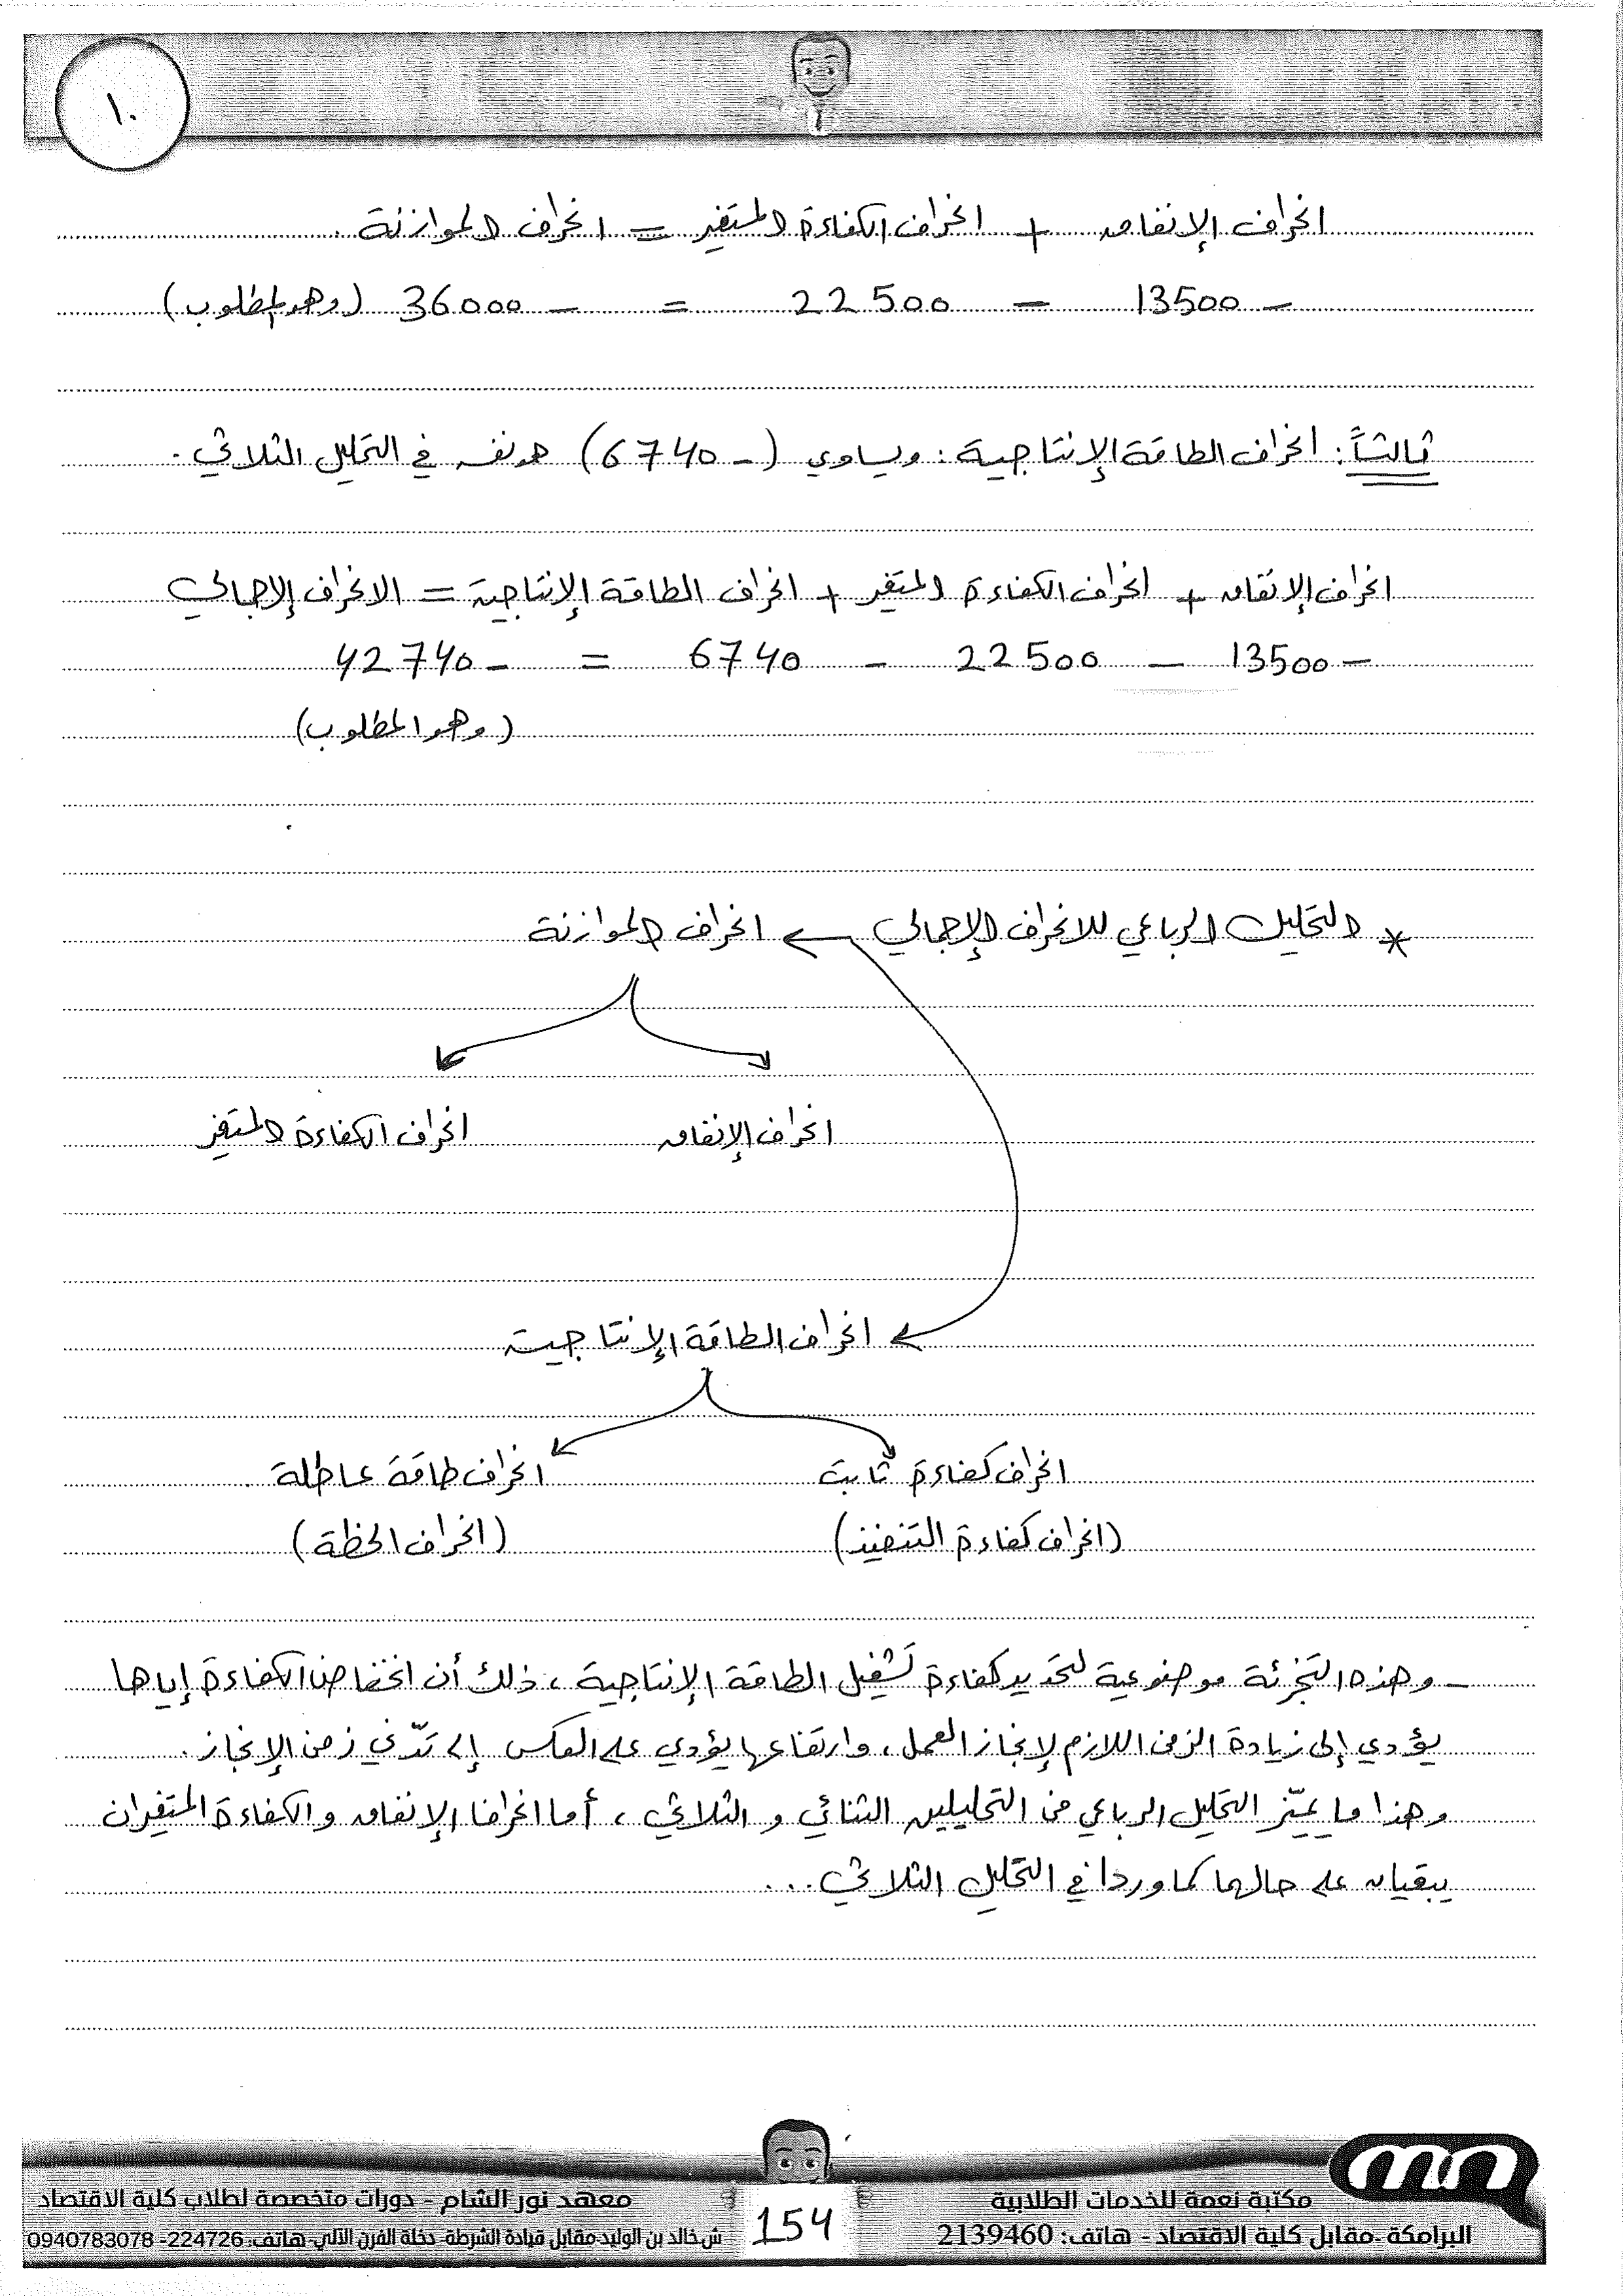 ١٠
انحراف الإنفاق + انحراف الكفاءة المتغير = انحراف الموازنة .
- 13500 - 22500 = - 36000 (وهو المطلوب)
ثالثاً: انحراف الطاقة الإنتاجية : ويساوي (- 6740) هو نفسه في التحليل الثلاثي .
انحراف الإنفاق + انحراف الكفاءة المتغير + انحراف الطاقة الإنتاجية = الانحراف الإجمالي
- 13500 - 22500 - 6740 = - 42740
(وهو المطلوب)
* التحليل الرباعي للانحراف الإجمالي ← انحراف الموازنة
انحراف الإنفاق انحراف الكفاءة المتغير
انحراف الطاقة الإنتاجية
انحراف كفاءة ثابت انحراف طاقة عاطلة
(انحراف كفاءة التنفيذ) (انحراف الخطة)
- وهذه التجزئة موضوعية لتحديد كفاءة تشغيل الطاقة الإنتاجية ، ذلك أن انخفاض الكفاءة إياها
يؤدي إلى زيادة الزمن اللازم لإنجاز العمل ، وارتفاعها يؤدي على العكس إلى تدّني زمن الإنجاز .
وهذا ما يميّز التحليل الرباعي من التحليلين الثنائي و الثلاثي ، أما انحرافا الإنفاق والكفاءة المتغيران
يبقيان على حالهما كما وردا في التحليل الثلاثي ...
mn
مكتبة نعمة للخدمات الطلابية
البرامكة -مقابل كلية الاقتصاد - هاتف: 2139460
154
معهد نور الشام - دورات متخصصة لطلاب كلية الاقتصاد
ش خالد بن الوليد-مقابل قيادة الشرطة- دخلة الفرن الآلي- هاتف: 224726- 0940783078